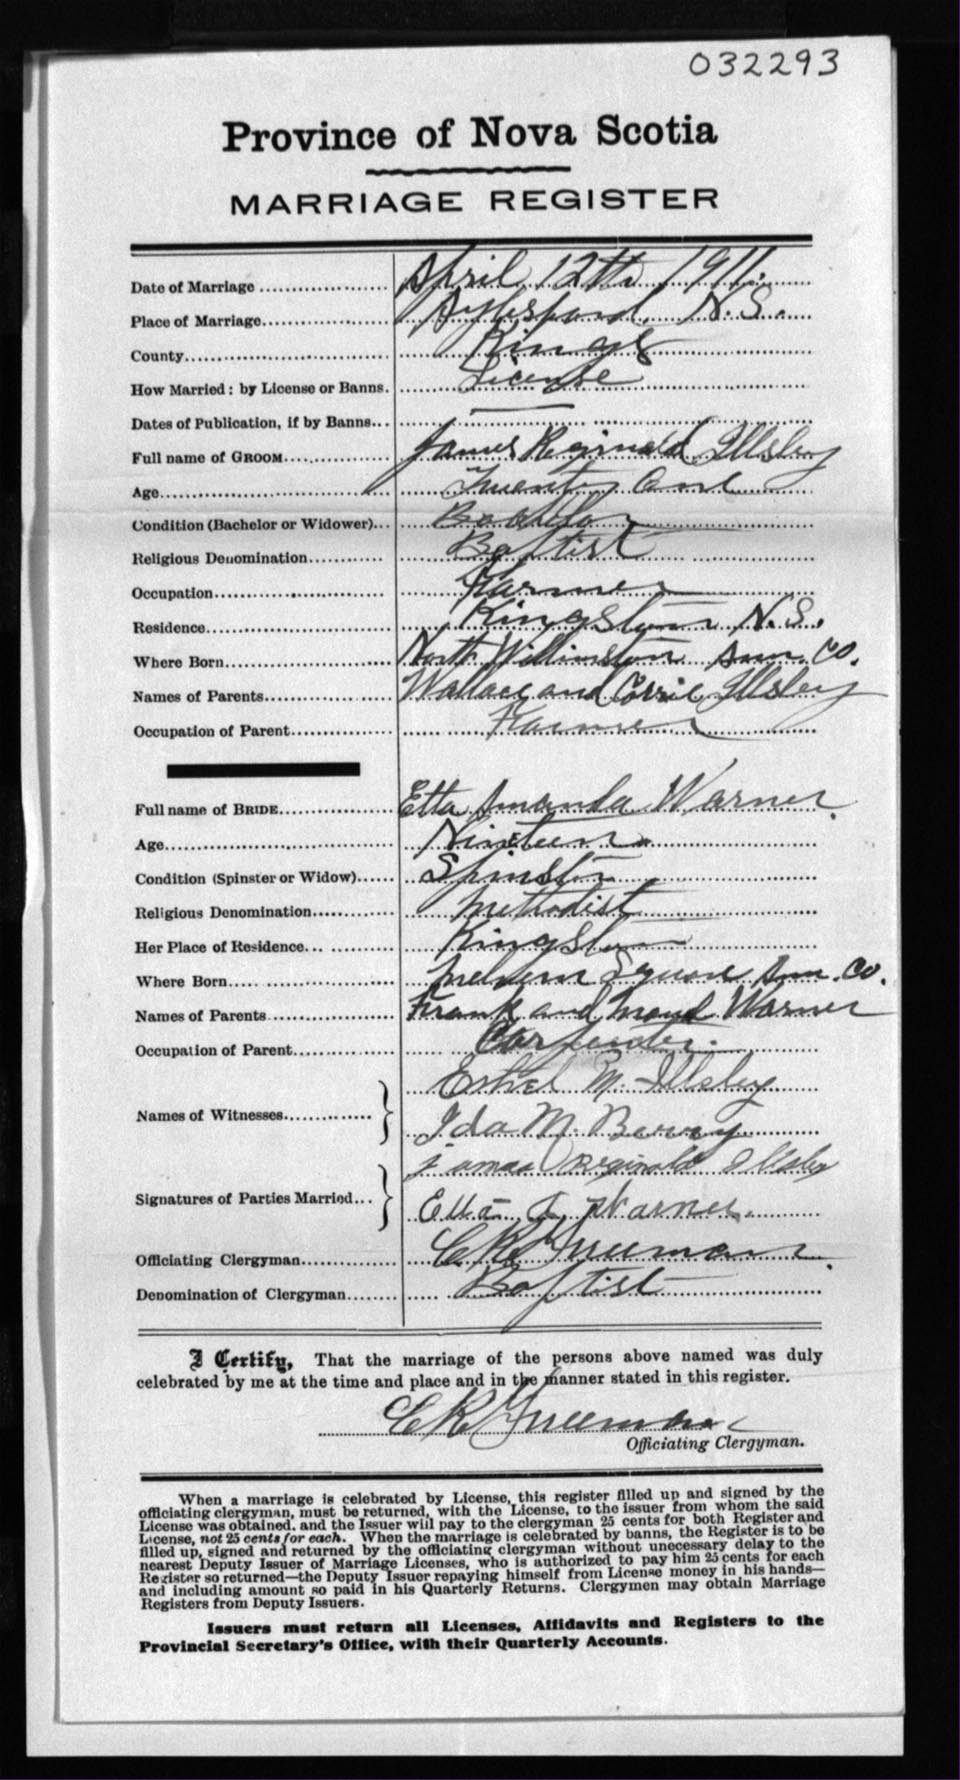 032293
Province of Nova Scotia
MARRIAGE REGISTER
Date of Marriage April 12th 1911.
Place of Marriage Aylesford, N.S.
County Kings
How Married: by License or Banns. License
Dates of Publication, if by Banns —
Full name of GROOM James Reginald Illsley
Age Twenty One
Condition (Bachelor or Widower) Bachelor
Religious Denomination Baptist
Occupation Farmer
Residence Kingston N.S.
Where Born North Williamston Ann. Co.
Names of Parents Wallace and Corrie Illsley
Occupation of Parent Farmer
Full name of BRIDE Etta Amanda Warner.
Age Nineteen
Condition (Spinster or Widow) Spinster
Religious Denomination Methodist
Her Place of Residence Kingston
Where Born Melvern Square Ann. Co.
Names of Parents Frank and Maud Warner
Occupation of Parent Carpenter.
Ethel M. Illsley
Names of Witnesses
Ida M. Berry
James Reginald Illsley
Signatures of Parties Married
Etta A Warner.
Officiating Clergyman C K Freeman.
Denomination of Clergyman Baptist
I Certify, That the marriage of the persons above named was duly
celebrated by me at the time and place and in the manner stated in this register.
C K Freeman
Officiating Clergyman.
When a marriage is celebrated by License, this register filled up and signed by the
officiating clergyman, must be returned, with the License, to the issuer from whom the said
License was obtained, and the Issuer will pay to the clergyman 25 cents for both Register and
License, not 25 cents for each. When the marriage is celebrated by banns, the Register is to be
filled up, signed and returned by the officiating clergyman without unnecessary delay to the
nearest Deputy Issuer of Marriage Licenses, who is authorized to pay him 25 cents for each
Register so returned—the Deputy Issuer repaying himself from License money in his hands—
and including amount so paid in his Quarterly Returns. Clergymen may obtain Marriage
Registers from Deputy Issuers.
Issuers must return all Licenses, Affidavits and Registers to the
Provincial Secretary's Office, with their Quarterly Accounts.